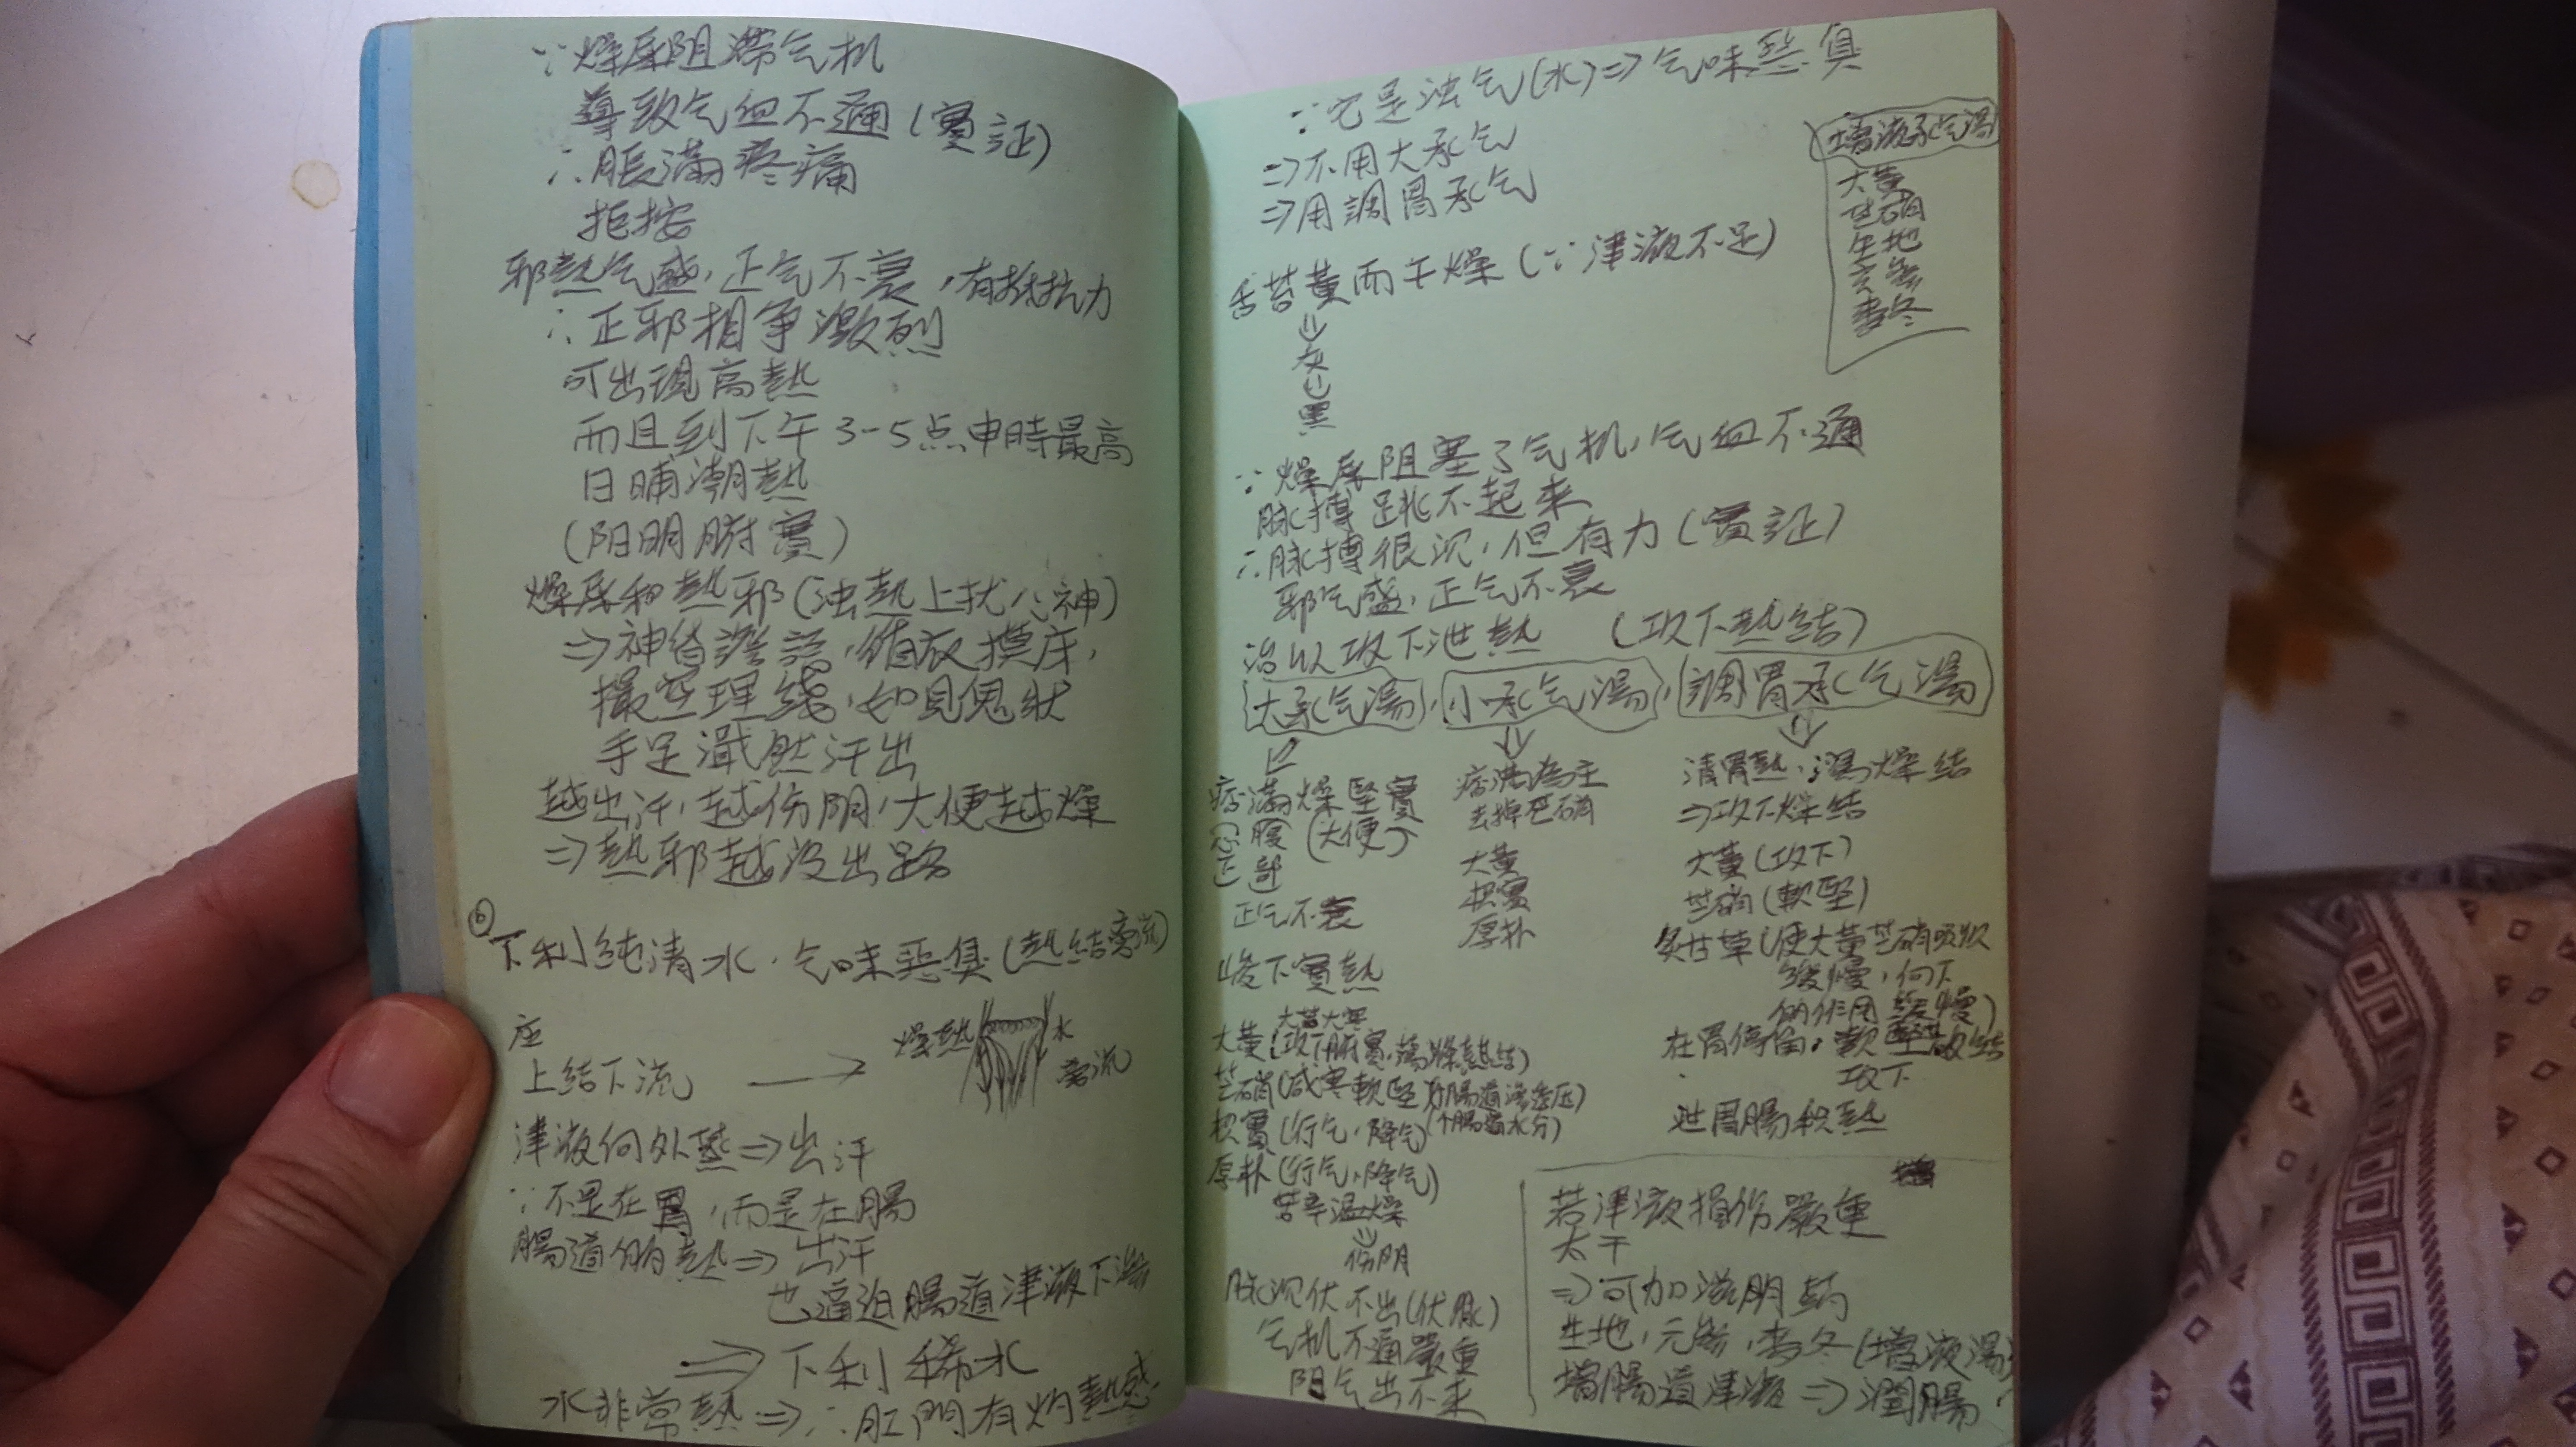 ∵燥屎阻滯气机
導致气血不通(實証)
∴脹滿疼痛
拒按
邪熱气盛,正气不衰,有抵抗力
∴正邪相争激烈
可出現高熱
而且到下午3-5点申時最高
日晡潮熱
(阳明腑實)
燥屎和熱邪(浊熱上扰心神)
⇒神昏譫語,循衣摸床,
撮空理线,如見鬼狀
手足濈然汗出
越出汗,越伤阴,大便越燥
⇒熱邪越没出路
⑥下利純清水,气味惡臭(熱結旁流)
上結下流
燥熱
水
旁流
津液向外蒸⇒出汗
∵不是在胃,而是在腸
腸道的熱⇒出汗
也逼迫腸道津液下
⇒下利稀水
水非常熱⇒∴肛門有灼熱感
∵它是浊气(水)⇒气味惡臭
⇒不用大承气
⇒用調胃承气
增液承气湯
大黃
芒硝
生地
玄参
麦冬
舌苔黃而干燥(∵津液不足)
⇓
灰
⇓
黑
∵燥屎阻塞了气机,气血不通
脉搏跳不起來
∴脉搏很沉,但有力(實証)
邪气盛,正气不衰
治以攻下泄熱 (攻下熱結)
大承气湯,小承气湯,調胃承气湯
痞滿燥堅實
(心下) 腹部 (大便)
正气不衰
峻下實熱
大苦大寒
大黃(攻下腑實,蕩滌熱結)
芒硝(咸寒軟堅,腸道滲透压)
(个腸道水分)
枳實(行气,降气)
厚朴(行气,降气)
苦辛温燥
⇓
伤阴
脉沉伏不出(伏脉)
气机不通嚴重
阴气出不来
痞滿為主
去掉芒硝
大黃
枳實
厚朴
清胃熱,瀉燥結
⇒攻下燥結
大黃(攻下)
芒硝(軟堅)
炙甘草(使大黃芒硝吸收
缓慢,向下
的作用缓慢)
在胃停留,軟堅散結
攻下
泄胃腸积熱
若津液損伤嚴重
太干
⇒可加滋阴药
生地,元参,麦冬(增液湯)
增腸道津液⇒潤腸